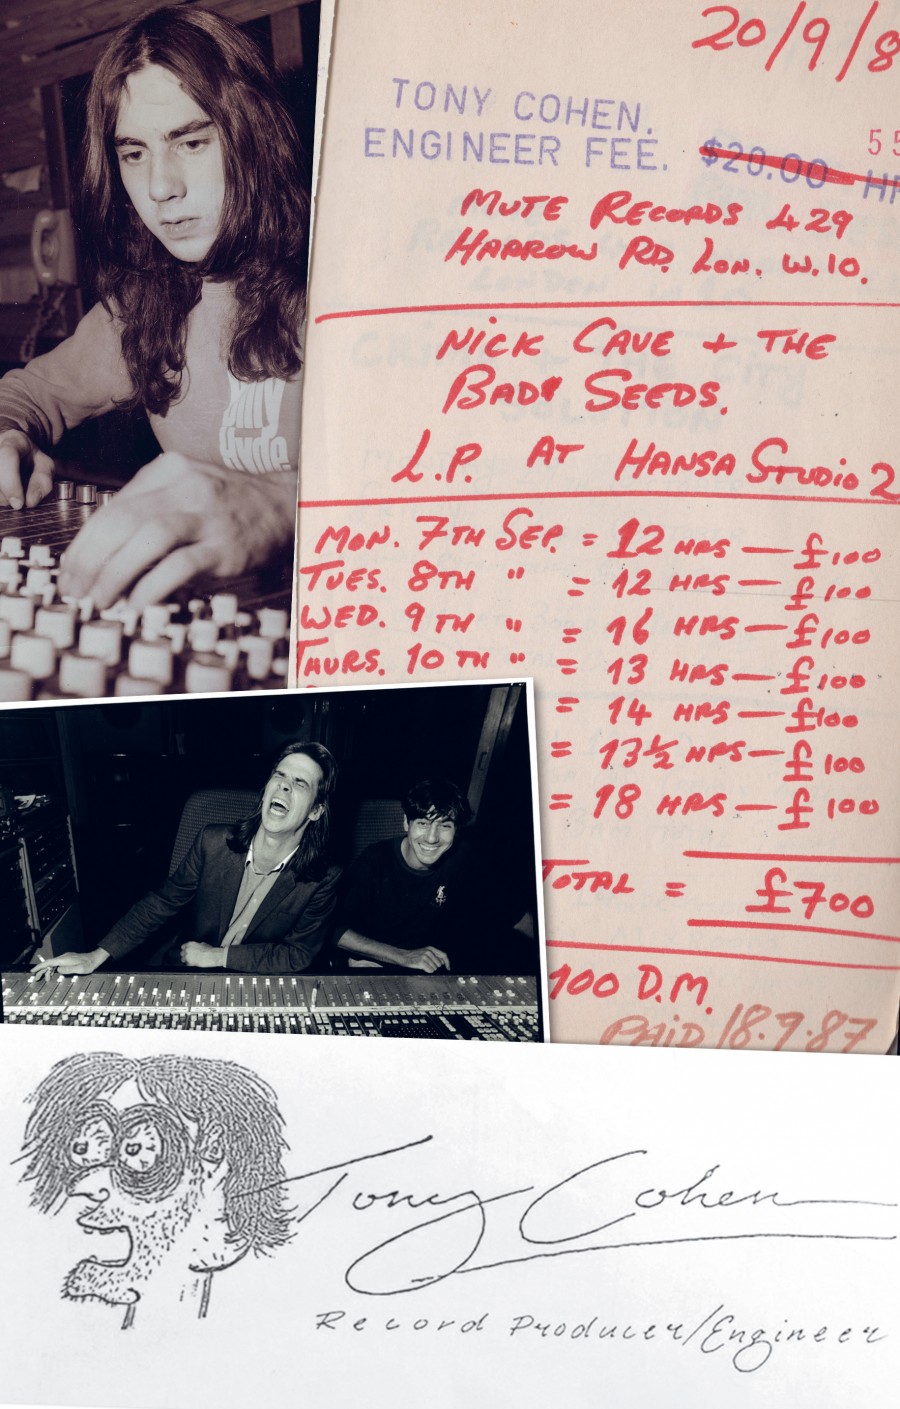 20/9/8
TONY COHEN.
ENGINEER FEE. $20.00 HR
55
MUTE RECORDS 429
HARROW RD. LON. W.10.
NICK CAVE + THE
BAD SEEDS.
L.P. AT HANSA STUDIO 2
MON. 7TH SEP. = 12 HRS — £100
TUES. 8TH " = 12 HRS — £100
WED. 9TH " = 16 HRS — £100
THURS. 10TH " = 13 HRS — £100
= 14 HRS — £100
= 13½ HRS — £100
= 18 HRS — £100
TOTAL = £700
100 D.M.
PAID 18.9.87
Hyde.
Tony Cohen
Record Producer/Engineer